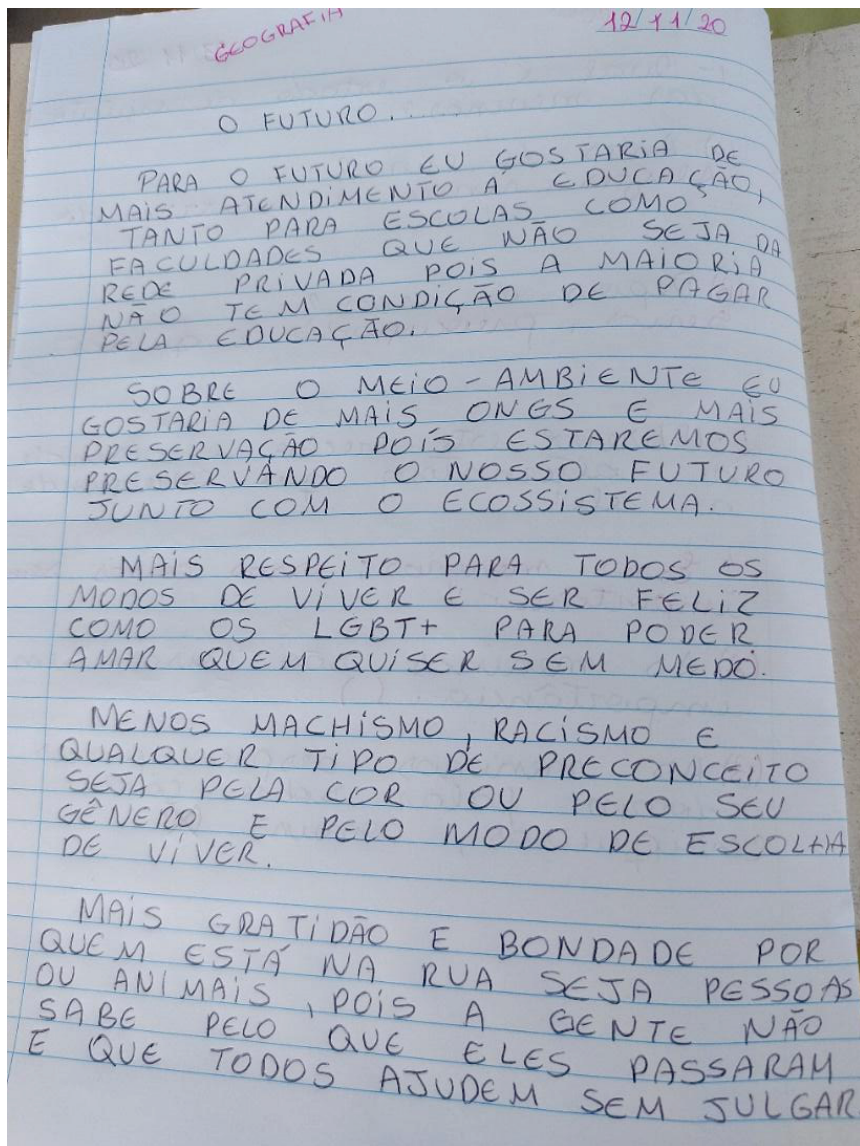 GEOGRAFIA
12/11/20
O FUTURO...
PARA O FUTURO EU GOSTARIA DE
MAIS ATENDIMENTO A EDUCAÇÃO,
TANTO PARA ESCOLAS COMO
FACULDADES QUE NÃO SEJA DA
REDE PRIVADA POIS A MAIORIA
NÃO TEM CONDIÇÃO DE PAGAR
PELA EDUCAÇÃO.
SOBRE O MEIO-AMBIENTE EU
GOSTARIA DE MAIS ONGS E MAIS
PRESERVAÇÃO POIS ESTAREMOS
PRESERVANDO O NOSSO FUTURO
JUNTO COM O ECOSSISTEMA.
MAIS RESPEITO PARA TODOS OS
MODOS DE VIVER E SER FELIZ
COMO OS LGBT+ PARA PODER
AMAR QUEM QUISER SEM MEDO.
MENOS MACHISMO, RACISMO E
QUALQUER TIPO DE PRECONCEITO
SEJA PELA COR OU PELO SEU
GÊNERO E PELO MODO DE ESCOLHA
DE VIVER.
MAIS GRATIDÃO E BONDADE POR
QUEM ESTÁ NA RUA SEJA PESSOAS
OU ANIMAIS, POIS A GENTE NÃO
SABE PELO QUE ELES PASSARAM
E QUE TODOS AJUDEM SEM JULGAR